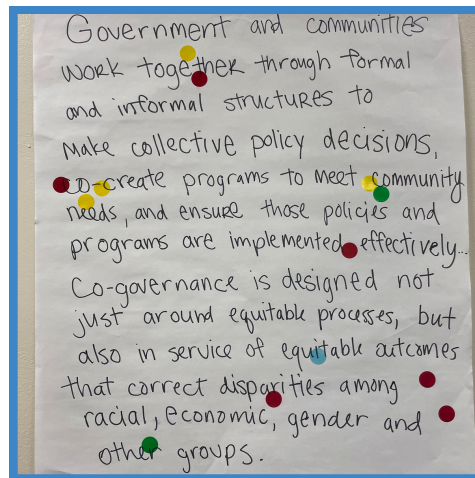 Government and communities
work together through formal
and informal structures to
make collective policy decisions,
co-create programs to meet community
needs, and ensure those policies and
programs are implemented effectively...
Co-governance is designed not
just around equitable processes, but
also in service of equitable outcomes
that correct disparities among
racial, economic, gender and
other groups.